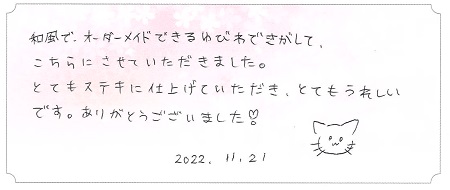 和風で、オーダーメイドできるゆびわでさがして、
こちらにさせていただきました。
とてもステキに仕上げていただき、とてもうれしい
です。ありがとうございました♡
2022. 11. 21